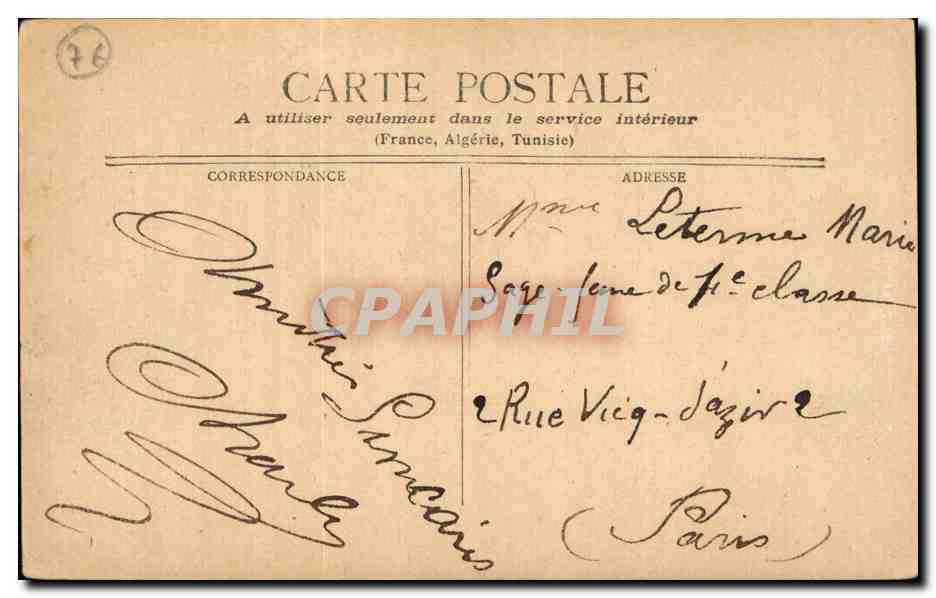 76
CARTE POSTALE
A utiliser seulement dans le service intérieur
(France, Algérie, Tunisie)
CORRESPONDANCE
Amitiés Sincères
Charles
ADRESSE
Mme Leterme Marie
Sage-feme de 1e classe
2 Rue Vicq-d'azir 2
(Paris)
CPAPHIL